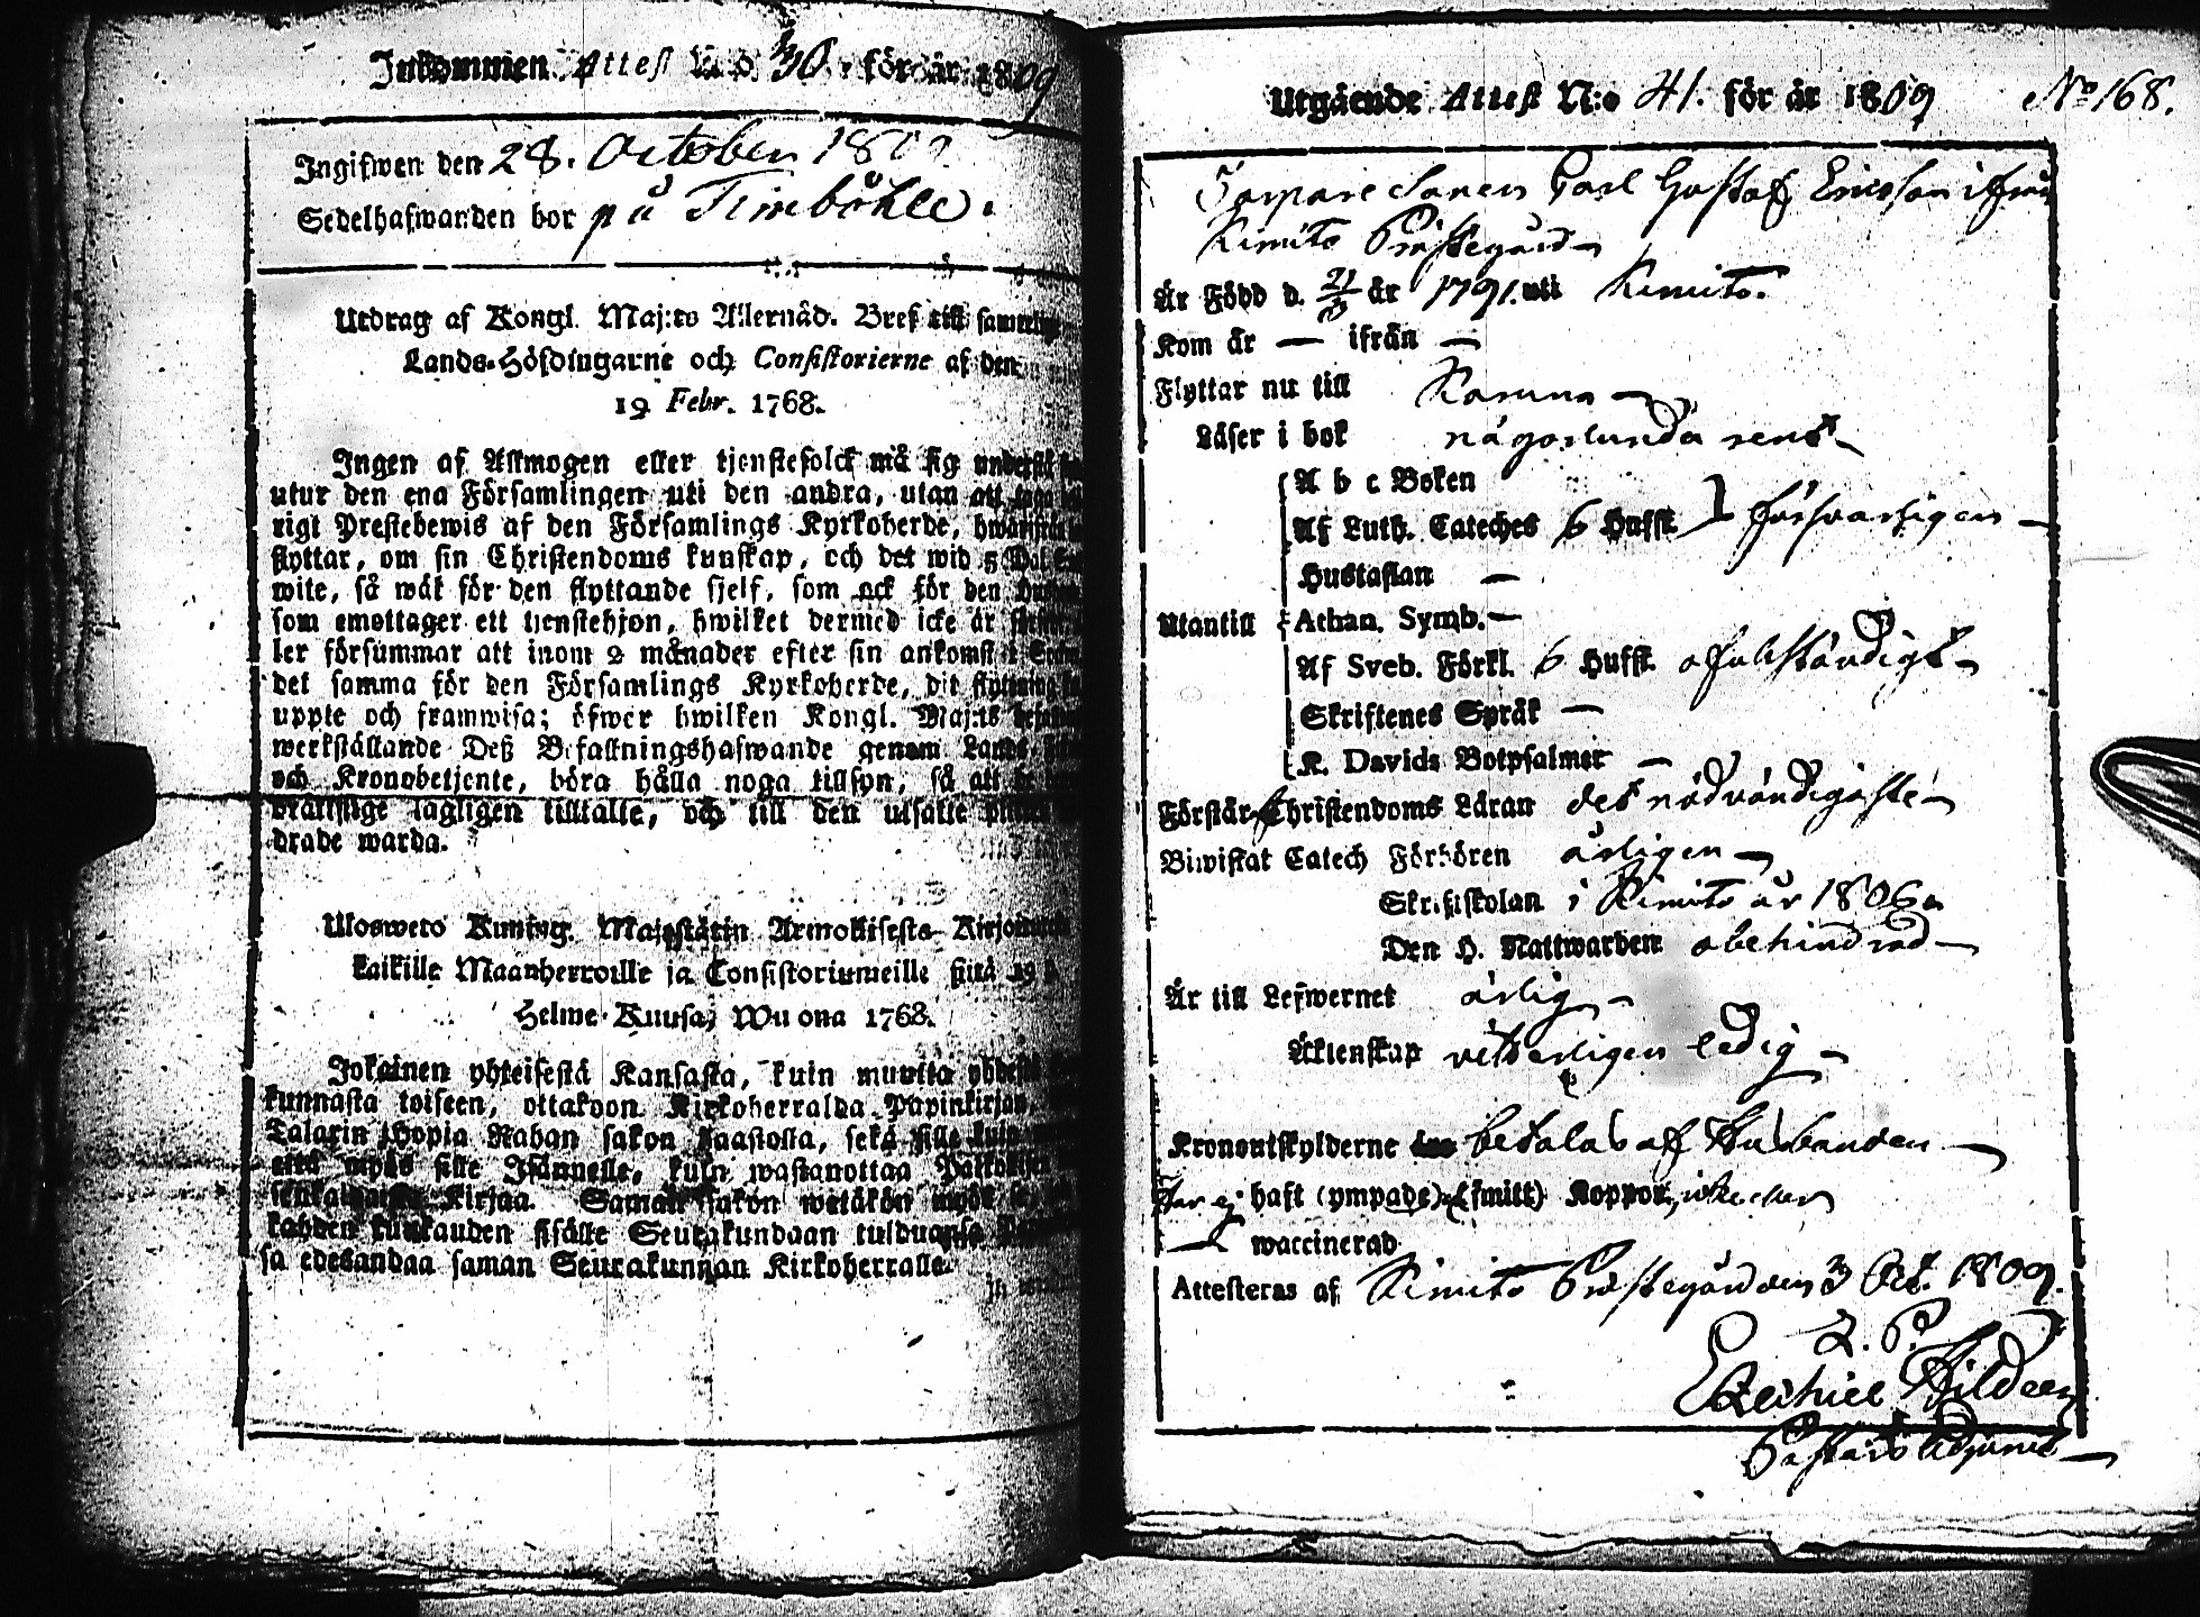 Inkommen Attest N:o 30. för år 1809
Ingifwen den 28. October 1809
Sedelhafwanden bor på Timböhle.
Utdrag af Kongl. Maj:ts Allernåd. Bref till samtelige
Lands-Höfdingarne och Consistorierne af den
19 Febr. 1768.
Ingen af Allmogen eller tjenstefolck må sig understå
utur den ena Församlingen uti den andra, utan att taga
rigt Prestebewis af den Församlings Kyrkoherde, hwarifrån
flyttar, om sin Christendoms kunskap, och det wid 5 Dal.
wite, så wäl för den flyttande sjelf, som ock för den
som emottager ett tjenstehjon, hwilket dermed icke är
ler försummar att inom 2 månader efter sin ankomst i
det samma för den Församlings Kyrkoherde, dit flyttning
uppte och framwisa; öfwer hwilken Kongl. Maj:ts
werkställande Deß Befallningshafwande genom Lands-
och Kronobetjente, böra hålla noga tillsyn, så att
brättslige lagligen tilltalte, och till den utsatte
drade warda.
Uloswero Kuning. Majestätin Armollisesta Kirjoituxesta
kaikille Maanherroille ja Consistoriumeille siitä 19
Helme-Kuusa, Wuona 1768.
Jokainen yhteisestä Kansasta, kuin muutta yhdestä
kunnasta toiseen, ottakoon Kirkoherralda Papinkirjan,
Talarin Hopia Rahan sakon haastolla, sekä sille kuin
että myös sille Isännelle, kuin wastanottaa Palkollisen
Kirjaa. Saman sakon wetäkön myös
kahden kuukauden sisälle Seurakundaan tulduansa
sa edesandaa saman Seurakunnan Kirkoherralle.
Utgående Attest N:o 41. för år 1809 No 168.
Sonen Carl Gustaf Ericsson ifrån
Kimito Prästegård
Är Född d. 21/3 år 1791. uti Kimito.
Kom år — ifrån —
Flyttar nu till Karuna —
Läser i bok någorlunda rent —
A b c Boken
Af Luth. Cateches 6 Hufst. } försvarligen —
Hustaflan —
Utantill Athan. Symb. —
Af Sveb. Förkl. 6 Hufst. ofulständigt —
Skriftenes Språk —
K. Davids Botpsalmer —
Förstår Christendoms Läran det nödvändigaste —
Biwistat Catech Förhören årligen —
Skriftskolan i Kimito år 1806.
Den H. Nattwarden obehindrad —
Är till Lefwernet ärlig —
Äktenskap vitterligen ledig —
Kronoutskylderne betalas af Husbonden —
Har ej haft (ympade) (smitt) Koppor, icke eller
— waccinerad
Attesteras af Kimito Prästegård den 3 Oct. 1809.
Ezechiel Hildeen
Pastors Adjunct —